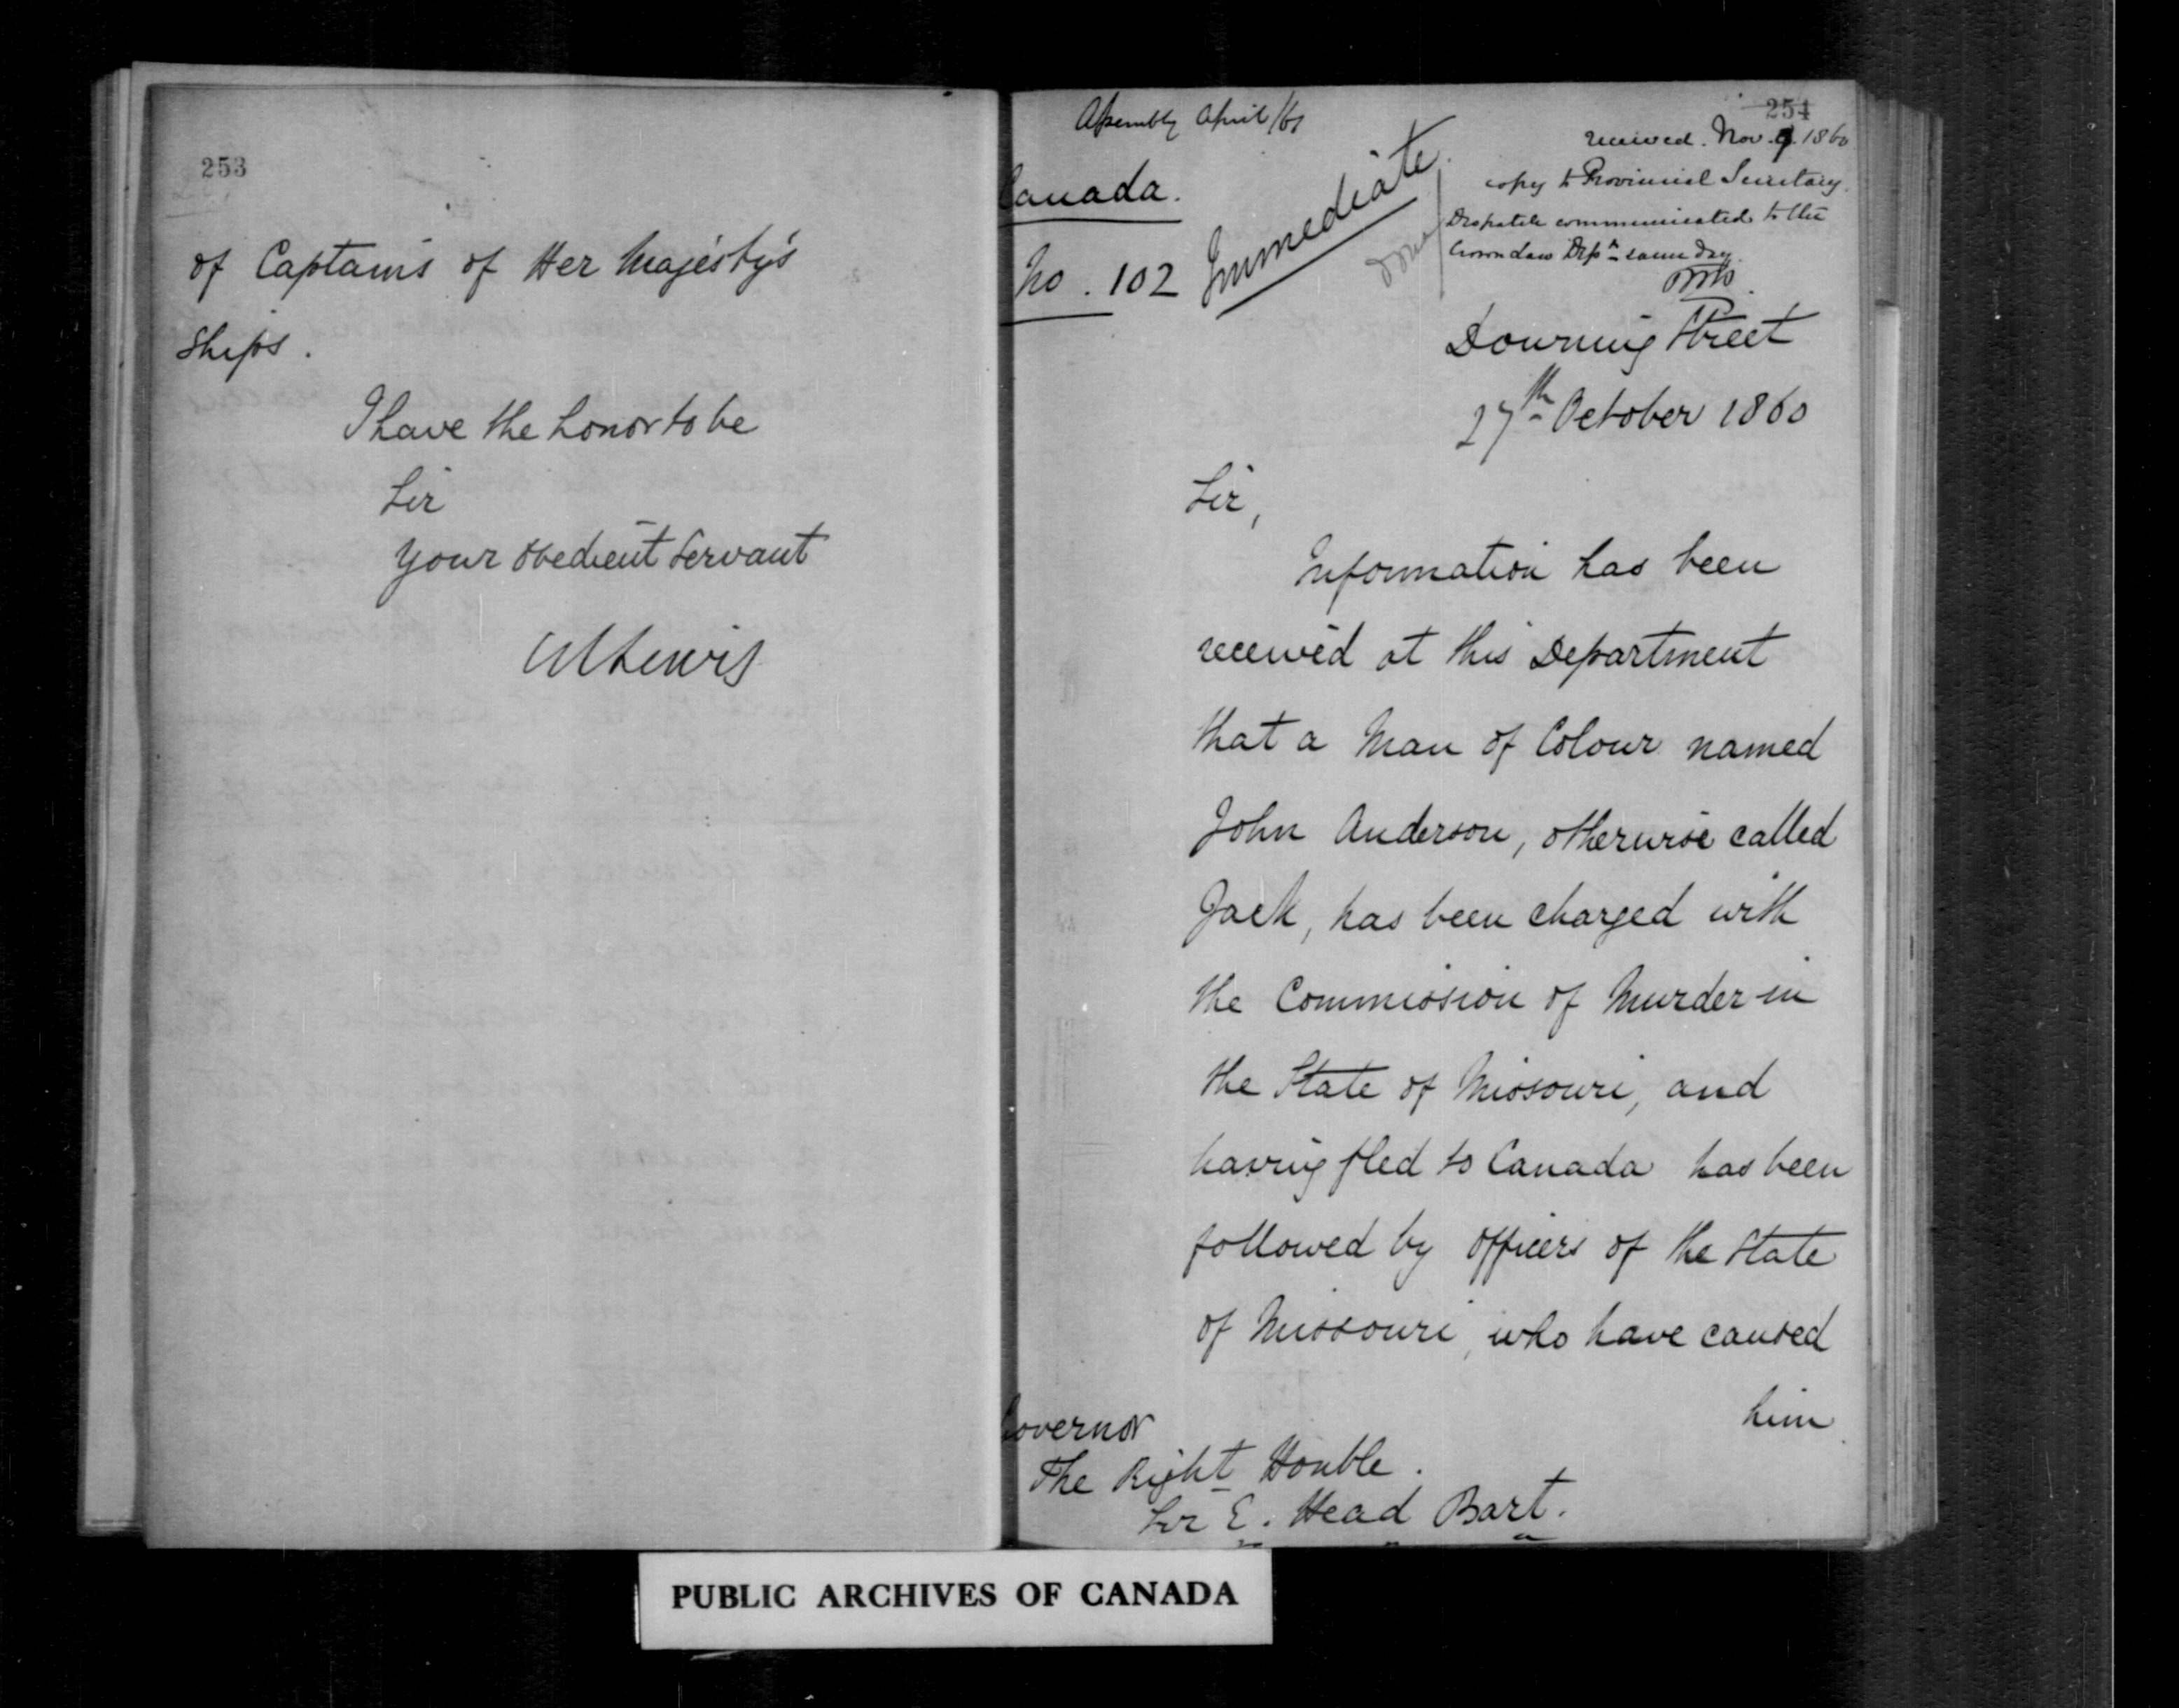 253
of Captains of Her Majesty's
Ships.
I have the honor to be
Sir
Your obedient Servant
G C Lewis
254
Assembly April /61
received. Nov. 9. 1860
copy to Provincial Secretary.
Despatch communicated to the
Crown Law Dept same day.
Done
Canada.
No. 102
Immediate.
Downing Street
27th October 1860
Sir,
Information has been
received at this Department
that a Man of Colour named
John Anderson, otherwise called
Jack, has been charged with
the Commission of Murder in
the State of Missouri, and
having fled to Canada has been
followed by officers of the State
of Missouri, who have caused
him
Governor
The Right Honble.
Sir E. Head Bart.
PUBLIC ARCHIVES OF CANADA